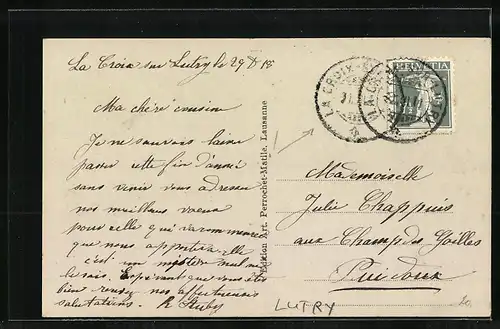 La Croix sur Lutry le 29 X 15
Ma chère cousine
Je ne saurais laisser
passer cette fin d'année
sans venir vous adresser
nos meilleurs voeux
pour celle qui va commencer
que nous apportera-elle
c'est un mystère nul ne
le sais. Espérant que vous êtes
bien reçu nos affectueuses
salutations.
Edition Art. Perrochet-Matile, Lausanne
LA CROIX
HELVETIA
Mademoiselle
Julie Chappuis
aux Champ des
Puidoux
LUTRY